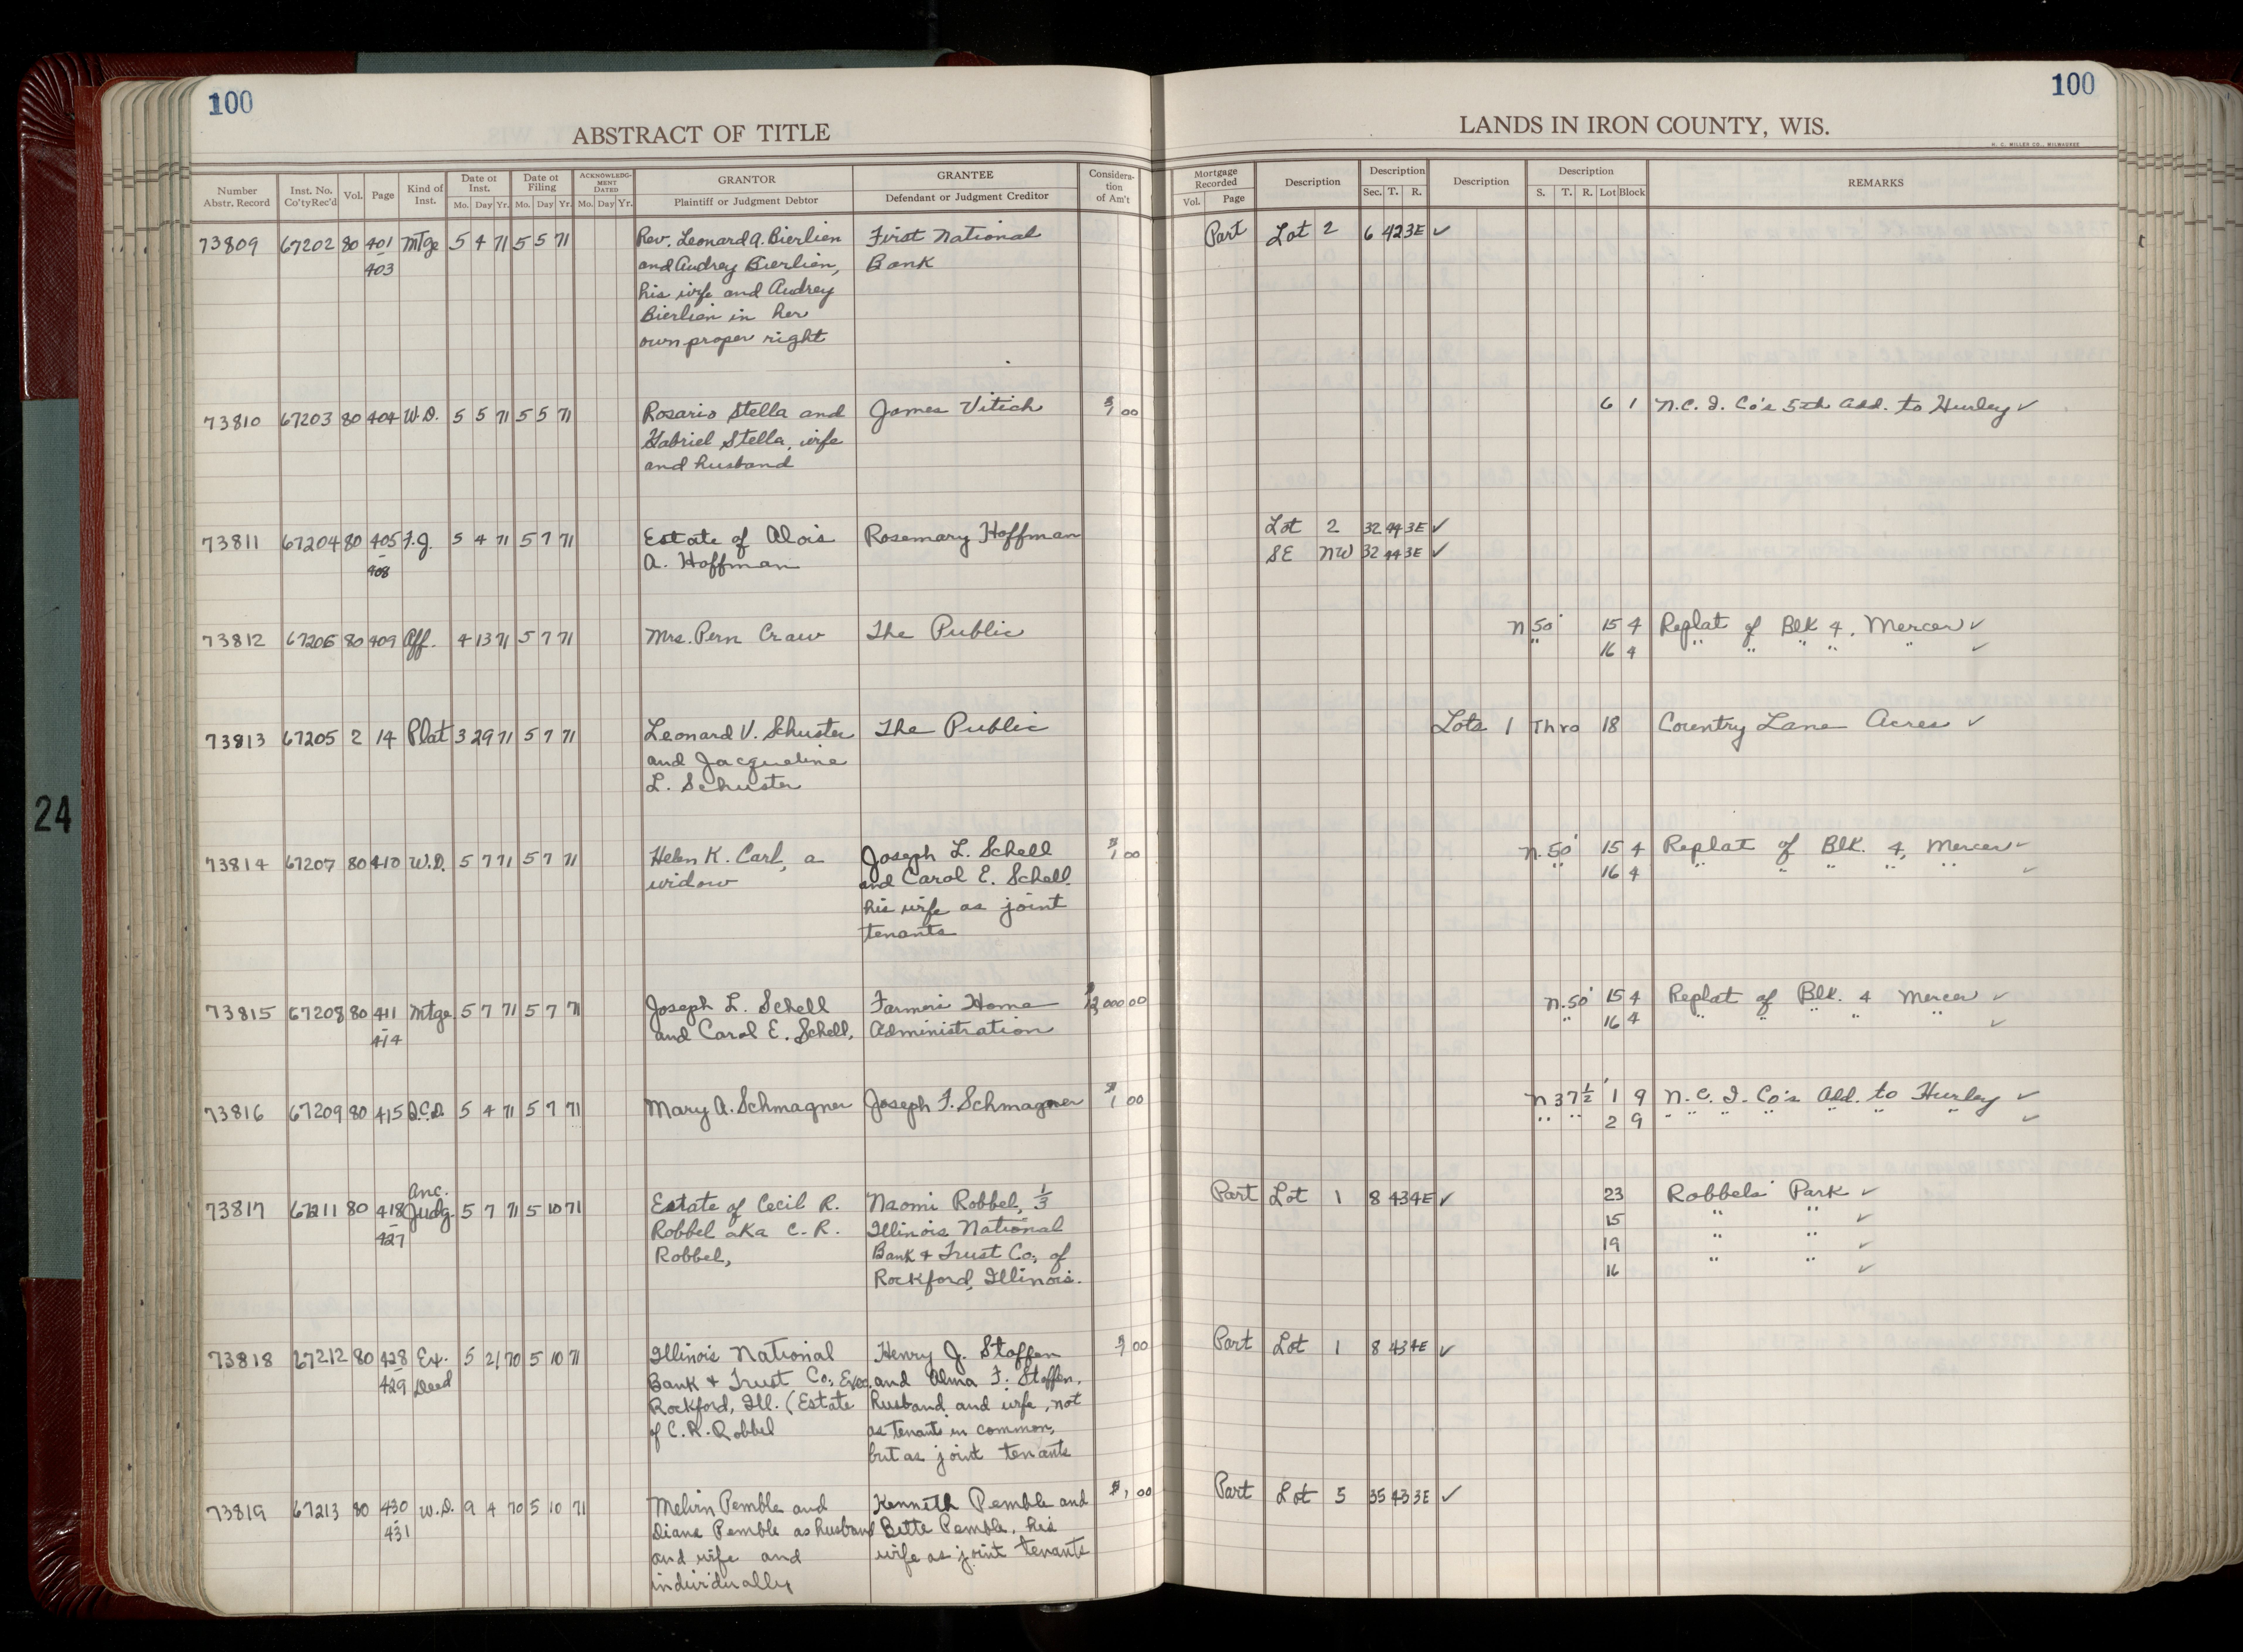 100
ABSTRACT OF TITLE
Number Abstr. Record | Inst. No. Co'ty Rec'd | Vol. | Page | Kind of Inst. | Date of Inst. Mo. Day Yr. | Date of Filing Mo. Day Yr. | ACKNOWLEDGMENT DATED Mo. Day Yr. | GRANTOR Plaintiff or Judgment Debtor | GRANTEE Defendant or Judgment Creditor | Consideration of Am't
100
LANDS IN IRON COUNTY, WIS.
H. C. MILLER CO., MILWAUKEE
Mortgage Recorded Vol. Page | Description | Description Sec. T. R. | Description | Description S. T. R. Lot Block | REMARKS
24
73809 67202 80 401 Mtge 5 4 71 5 5 71 Rev. Leonard A. Bierlien First National Part Lot 2 6 42 3E ✓
- 403 and Audrey Bierlien, Bank
his wife and Audrey
Bierlien in her
own proper right
73810 67203 80 404 W.D. 5 5 71 5 5 71 Rosario Stella and James Vitich $1 00 6 1 N.C.I. Co's 5th Add. to Hurley ✓
Gabriel Stella, wife
and husband
73811 67204 80 405 F.J. 5 4 71 5 7 71 Estate of Alois Rosemary Hoffman Lot 2 32 44 3E ✓
- 408 A. Hoffman SE NW 32 44 3E ✓
73812 67206 80 409 Aff. 4 13 71 5 7 71 Mrs. Pern Craw The Public N 50' 15 4 Replat of Blk 4, Mercer ✓
" 16 4 " " " " " ✓
73813 67205 2 14 Plat 3 29 71 5 7 71 Leonard V. Schuster The Public Lots 1 Thro 18 Country Lane Acres ✓
and Jacqueline
L. Schuster
73814 67207 80 410 W.D. 5 7 71 5 7 71 Helen K. Carl, a Joseph L. Schell $1 00 N. 50' 15 4 Replat of Blk. 4, Mercer ✓
widow and Carol E. Schell " 16 4 " " " " " ✓
his wife as joint
tenants
73815 67208 80 411 Mtge 5 7 71 5 7 71 Joseph L. Schell Farmers Home 000 00 N. 50' 15 4 Replat of Blk. 4 Mercer ✓
- 414 and Carol E. Schell, Administration " 16 4 " " " " " ✓
73816 67209 80 415 Q.C.D. 5 4 71 5 7 71 Mary A. Schmagner Joseph F. Schmagner $1 00 N 37 1/2' 1 9 N.C.I. Co's Add. to Hurley ✓
" " 2 9 " " " " " " " ✓
Anc.
73817 67211 80 418 Judg. 5 7 71 5 10 71 Estate of Cecil R. Naomi Robbel, 1/3 Part Lot 1 8 43 4E ✓ 23 Robbels' Park ✓
- 427 Robbel aka C. R. Illinois National 15 " " ✓
Robbel, Bank & Trust Co., of 19 " " ✓
Rockford, Illinois. 16 " " ✓
73818 67212 80 428 Ex. 5 21 70 5 10 71 Illinois National Henry J. Staffen $1 00 Part Lot 1 8 43 4E ✓
- 429 Deed Bank & Trust Co., Exec. and Alma F. Staffen,
Rockford, Ill. (Estate husband and wife, not
of C. R. Robbel as tenants in common,
but as joint tenants
73819 67213 80 430 W.D. 9 4 70 5 10 71 Melvin Pemble and Kenneth Pemble and $1 00 Part Lot 5 35 43 3E ✓
- 431 Diana Pemble as husband Bette Pemble, his
and wife and wife as joint tenants
individually